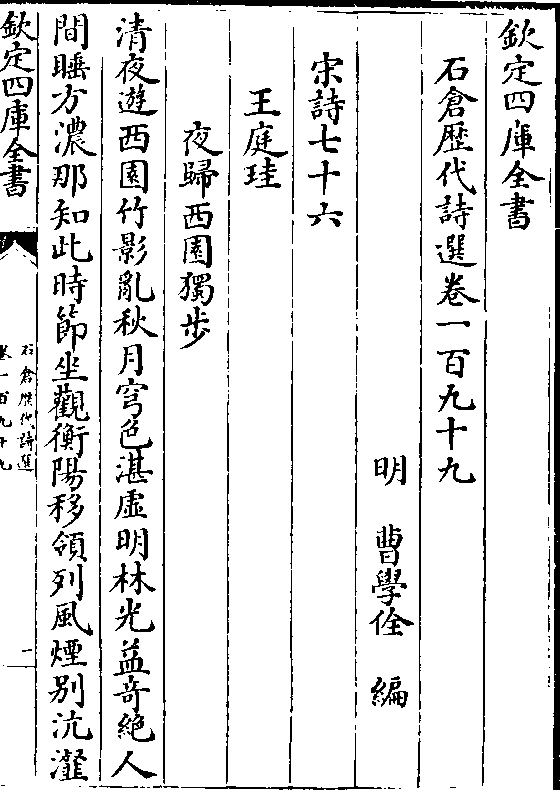 欽定四庫全書
石倉歴代詩選卷一百九十九
明　曹學佺　編
宋詩七十六
王庭珪
夜歸西園獨步
清夜遊西園竹影亂秋月穹色湛虚明林光益竒絶人
間睡方濃那知此時節坐觀衡陽移領列風煙别沆瀣
欽定四庫全書
石倉歴代詩選
卷一百九十九
一